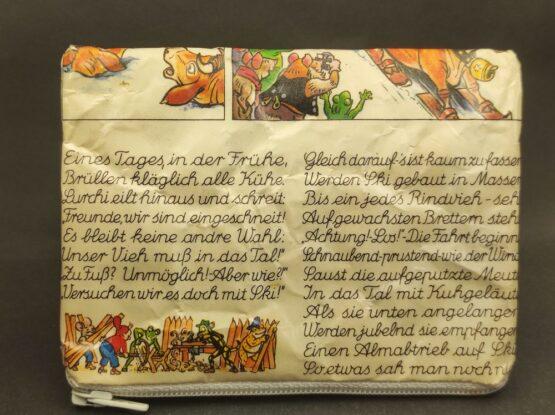 Eines Tages, in der Frühe,
Brüllen kläglich alle Kühe.
Lurchi eilt hinaus und schreit:
Freunde, wir sind eingeschneit!
Es bleibt keine andre Wahl:
Unser Vieh muß in das Tal!"
Zu Fuß? Unmöglich! Aber wie?"
Versuchen wir es doch mit Ski!"
Gleich darauf-'s ist kaum zu fassen
Werden Ski gebaut in Massen
Bis ein jedes Rindvieh - seh
Auf gewachsten Brettern steh
"Achtung!-Los!"-Die Fahrt beginn
Schnaubend-prustend-wie der Wind
Saust die aufgeputzte Meut
In das Tal mit Kuhgeläut
Als sie unten angelangen
Werden jubelnd sie empfangen
Einen Almabtrieb auf Ski
So etwas sah man noch ni